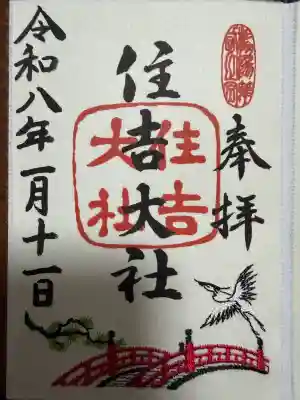 奉拝
住吉大社
住吉
大社
令和八年一月十一日